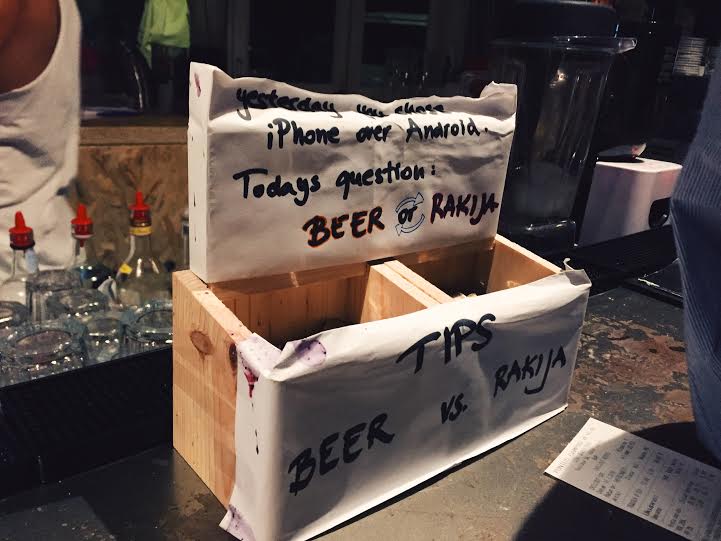 yesterday you chose
iPhone over Android.
Todays question:
BEER or RAKIJA
TIPS
BEER vs. RAKIJA